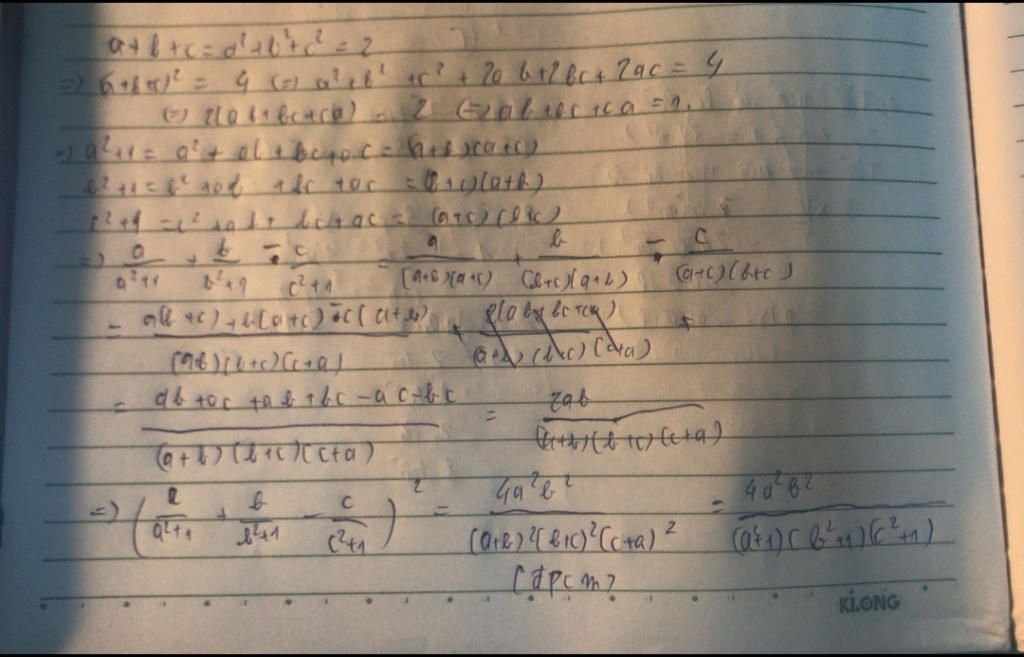 a+b+c=a²+b²+c²=2
=> (a+b+c)² = 4 <=> a²+b²+c²+2ab+2bc+2ac=4
<=> 2(ab+bc+ca) = 2 <=> ab+bc+ca=1.
=> a²+1 = a²+ab+bc+ac = (a+b)(a+c)
b²+1 = b²+ab+bc+ac = (b+c)(a+b)
c²+1 = c²+ab+bc+ac = (a+c)(b+c)
=> a/(a²+1) + b/(b²+1) - c/(c²+1) = a/((a+b)(a+c)) + b/((b+c)(a+b)) - c/((a+c)(b+c))
= (a(b+c)+b(a+c)-c(a+b))/((a+b)(b+c)(c+a)) 2(ab+bc+ca)/((a+b)(b+c)(c+a))
= (ab+ac+ab+bc-ac-bc)/((a+b)(b+c)(c+a)) = 2ab/((a+b)(b+c)(c+a))
=> (a/(a²+1) + b/(b²+1) - c/(c²+1))² = 4a²b²/((a+b)²(b+c)²(c+a)²) = 4a²b²/((a²+1)(b²+1)(c²+1))
(đpcm)
KLONG